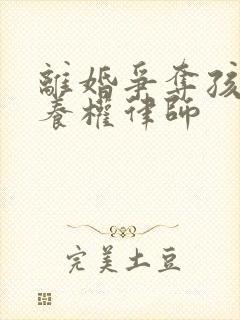 離婚爭奪孩
養權律師
完美土豆